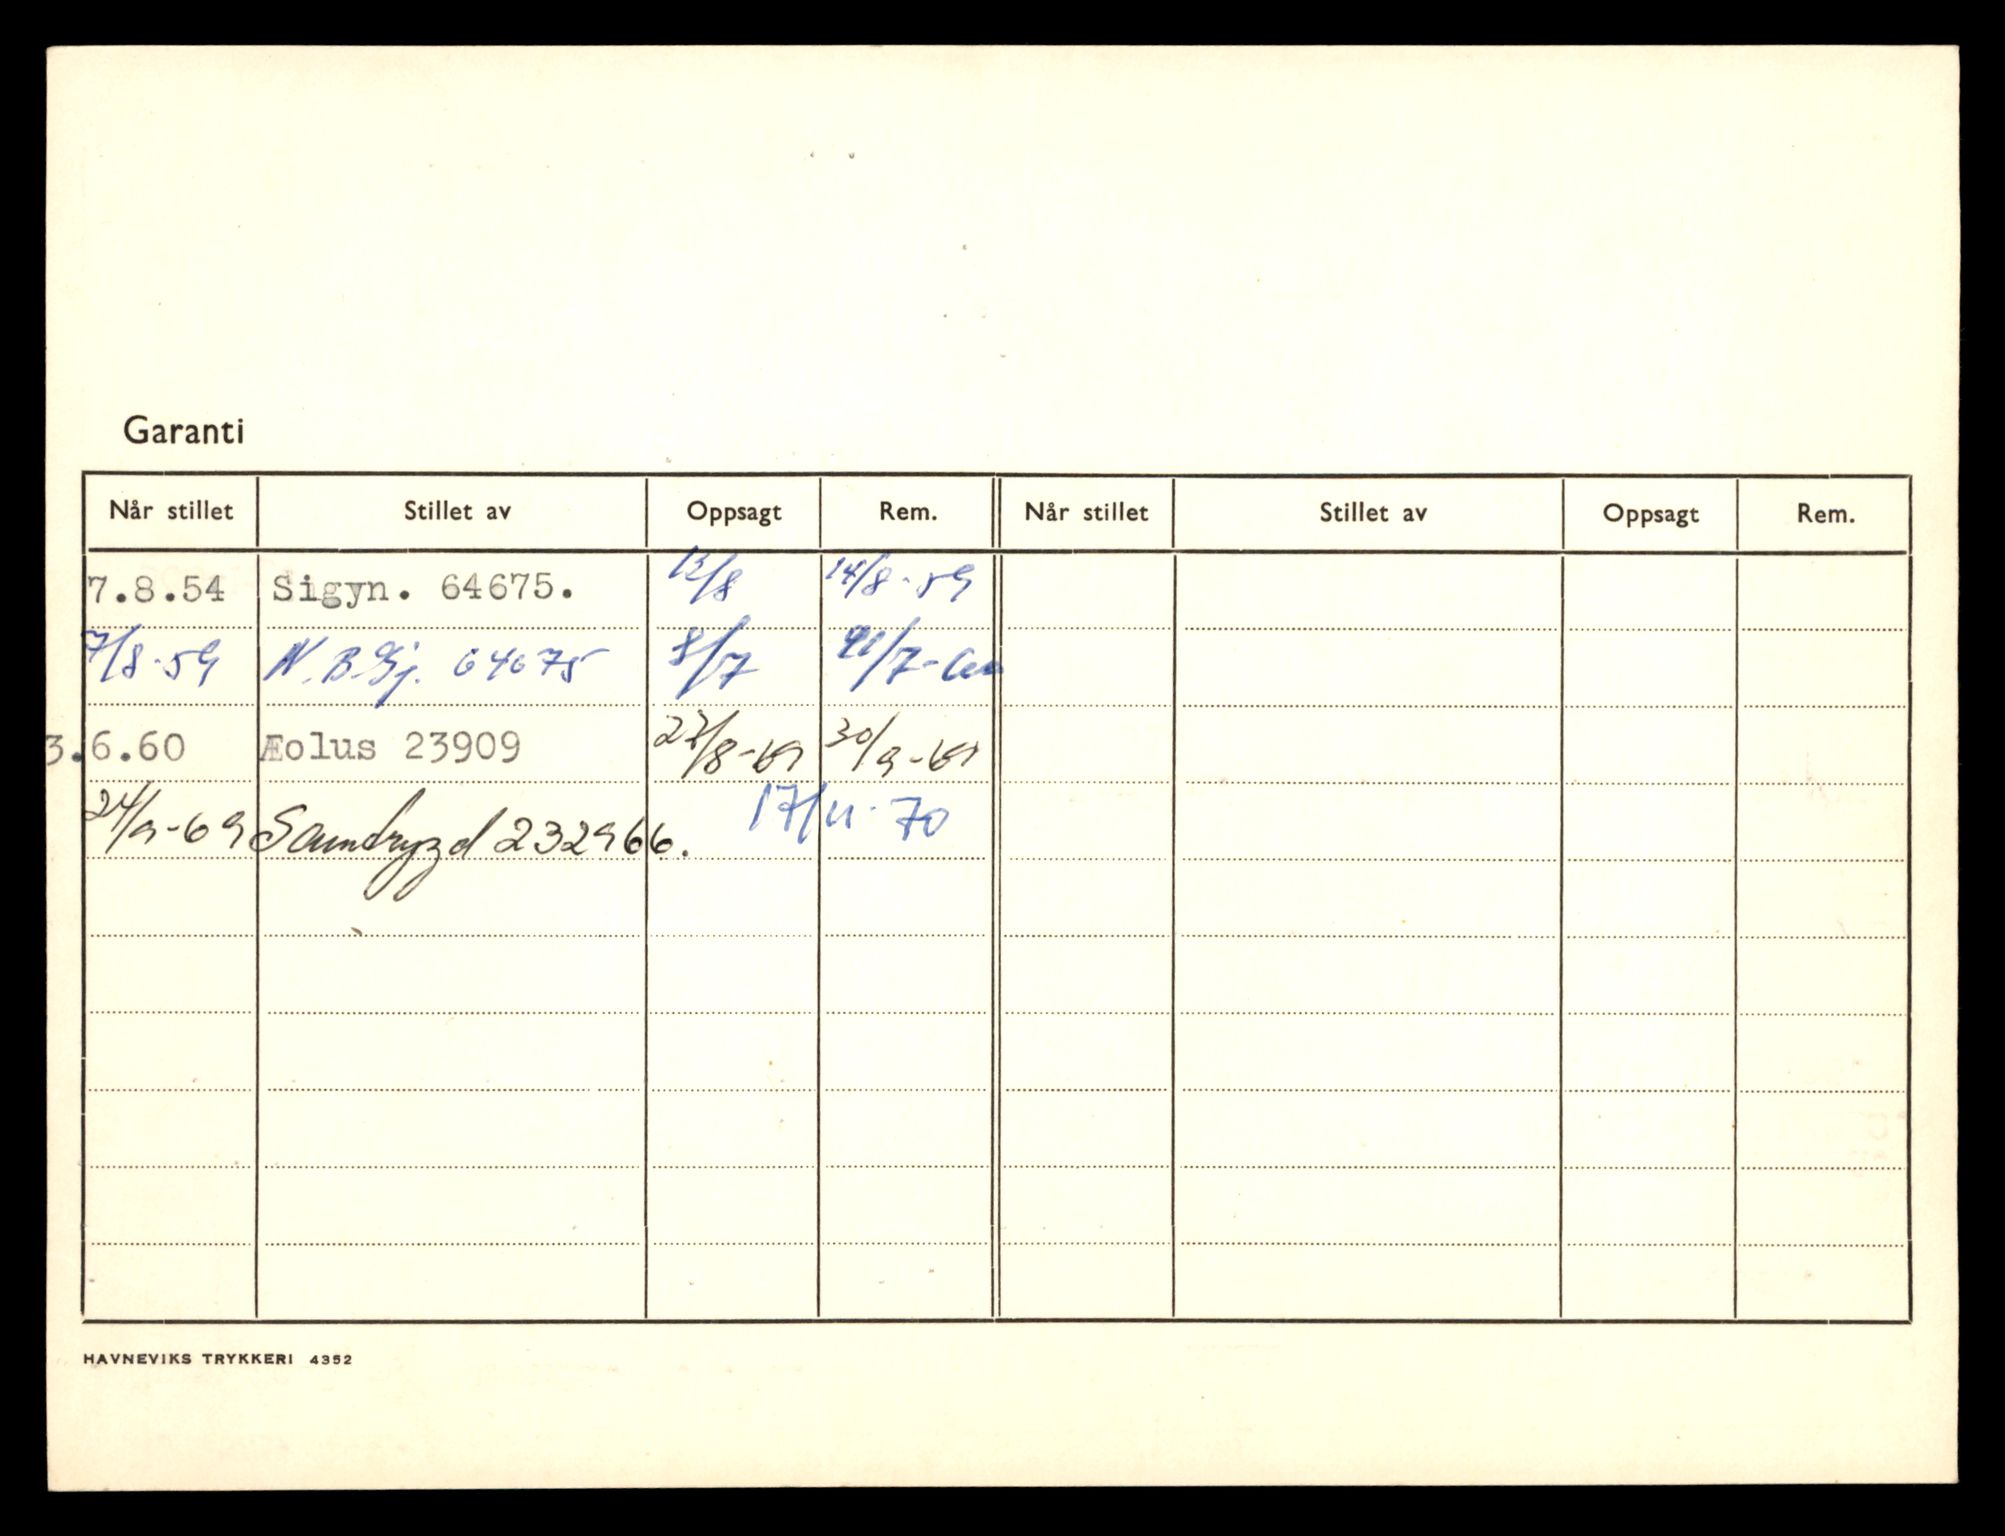 Garanti
Når stillet Stillet av Oppsagt Rem. Når stillet Stillet av Oppsagt Rem.
7.8.54 Sigyn. 64675. 13/8 14/8-59
7/8-59 N.B.Gj. 64675 8/7 /7-60
3.6.60 Æolus 23909 22/8-69 30/9-69
24/9-69 Samtrygd 232966. 17/11-70
HAVNEVIKS TRYKKERI 4352